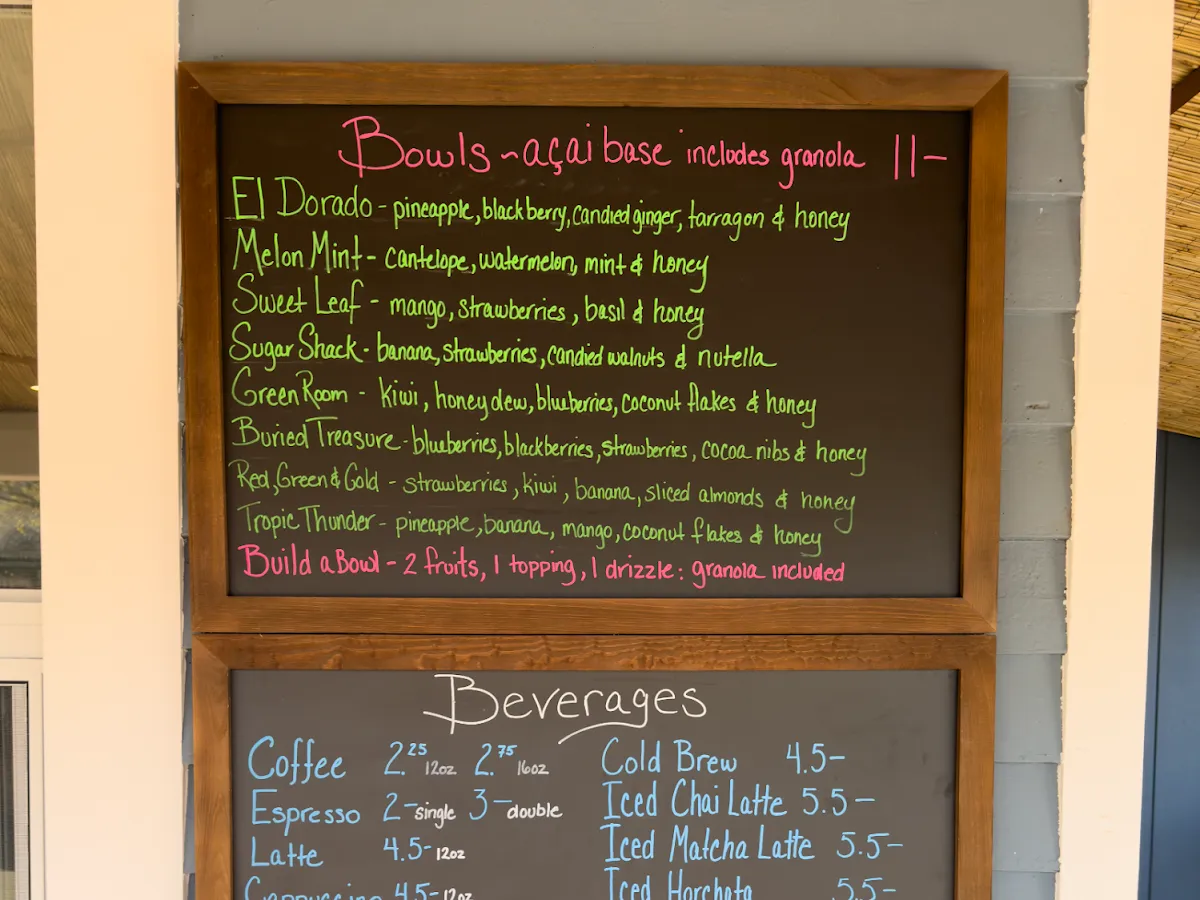 Bowls ~ açai base includes granola 11-
El Dorado - pineapple, blackberry, candied ginger, tarragon & honey
Melon Mint - cantelope, watermelon, mint & honey
Sweet Leaf - mango, strawberries, basil & honey
Sugar Shack - banana, strawberries, candied walnuts & nutella
Green Room - kiwi, honeydew, blueberries, coconut flakes & honey
Buried Treasure - blueberries, blackberries, strawberries, cocoa nibs & honey
Red, Green & Gold - strawberries, kiwi, banana, sliced almonds & honey
Tropic Thunder - pineapple, banana, mango, coconut flakes & honey
Build a Bowl - 2 fruits, 1 topping, 1 drizzle: granola included
Beverages
Coffee 2.25 12oz 2.75 16oz
Espresso 2- single 3- double
Latte 4.5- 12oz
Cappuccino 4.5- 12oz
Cold Brew 4.5-
Iced Chai Latte 5.5-
Iced Matcha Latte 5.5-
Iced Horchata 5.5-